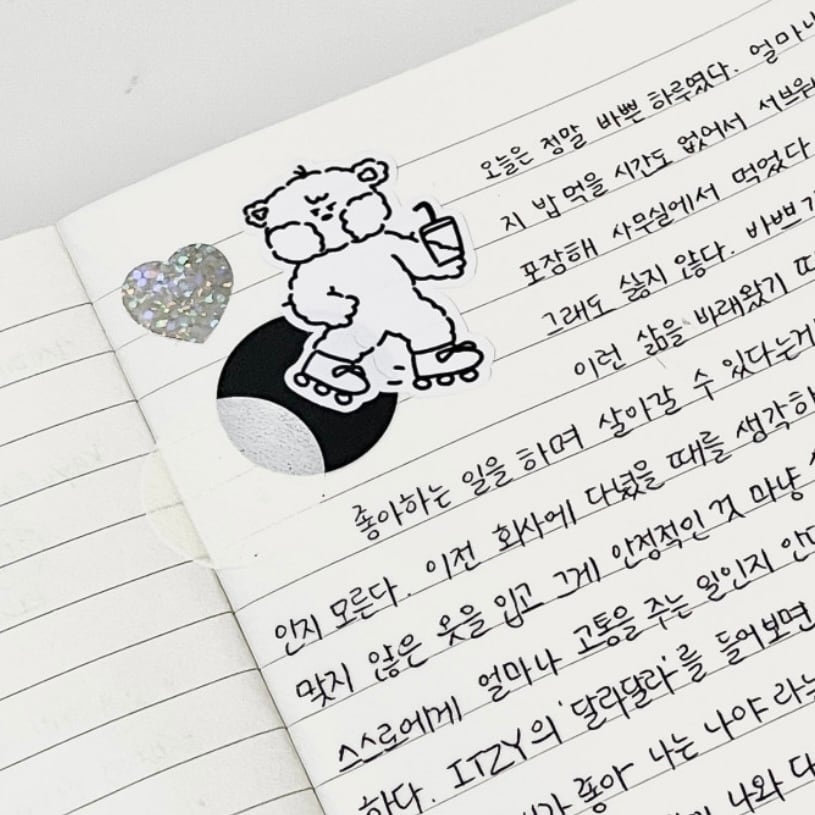 오늘은 정말 바쁜 하루였다. 얼마나
지 밥 먹을 시간도 없어서 서브웨
포장해 사무실에서 먹었다
그래도 싫지 않다. 바쁘기
이런 삶을 바래왔기 때
좋아하는 일을 하며 살아갈 수 있다는게
인지 모른다. 이전 회사에 다녔을 때를 생각하
맞지 않은 옷을 입고 그게 안정적인 것 마냥
스스로에게 얼마나 고통을 주는 일인지 안다
하다. ITZY의 '달라달라'를 들어보면
좋아 나는 나야 라는
나와 다